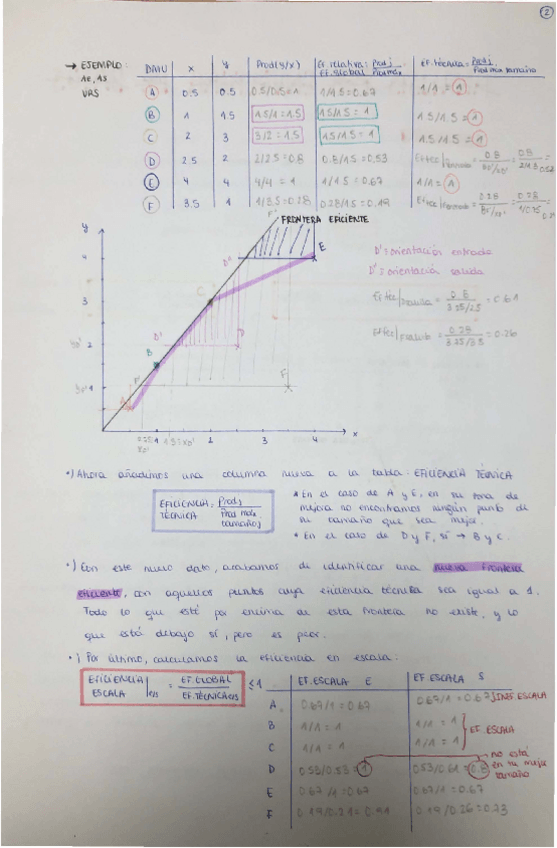 2
→ EJEMPLO:
AE, AS
VRS
DMU x y Prod(y/x) Ef. relativa: Prodj EF. técnica: Prodj
EF. Global Prodmáx Prod máx tamaño
A 0.5 0.5 0.5/0.5=1 1/1.5=0.67 1/1 = 1
B 1 1.5 1.5/1=1.5 1.5/1.5 = 1 1.5/1.5 = 1
C 2 3 3/2=1.5 1.5/1.5 = 1 1.5/1.5 = 1
D 2.5 2 2/2.5=0.8 0.8/1.5=0.53
E 4 4 4/4 = 1 1/1.5 = 0.67 1/1 = 1
F 3.5 1 1/3.5=0.28 0.28/1.5=0.19
F'
FRONTERA EFICIENTE
y
E
4
D''
C
3
D'
2
D
B
1
F
A
1 2 3 4 x
D': orientación entrada
D'': orientación salida
= 0.8 = 0.61
3.25/2.5
= 0.28 = 0.26
·) Ahora añadimos una columna nueva a la tabla: EFICIENCIA TÉCNICA
EFICIENCIA = Prodj
TÉCNICA Prod máx
tamañoj
* En el caso de A y E, en su zona de
mejora no encontramos ningún punto de
su tamaño que sea mejor.
* En el caso de D y F, sí → B y C.
·) Con este nuevo dato, acabamos de identificar una nueva frontera
eficiente, con aquellos puntos cuya eficiencia técnica sea igual a 1.
Todo lo que esté por encima de esta frontera no existe, y lo
que está debajo sí, pero es peor.
·) Por último, calculamos la eficiencia en escala:
EFICIENCIA = EF. GLOBAL ≤ 1
ESCALA e/s EF. TÉCNICA e/s
EF. ESCALA E EF. ESCALA S
A 0.67/1 = 0.67 0.67/1 = 0.67 } INEF. ESCALA
B 1/1 = 1 1/1 = 1
EF. ESCALA
C 1/1 = 1 1/1 = 1
no está
en su mejor
tamaño
D 0.53/0.53 = 1 0.53/0.61 = 0.8
E 0.67/1 = 0.67 0.67/1 = 0.67
F 0.19/0.21 = 0.91 0.19/0.26 = 0.73